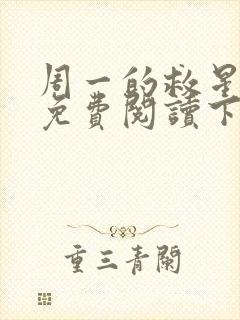 周一的救星
免費閱讀下
重三青闌